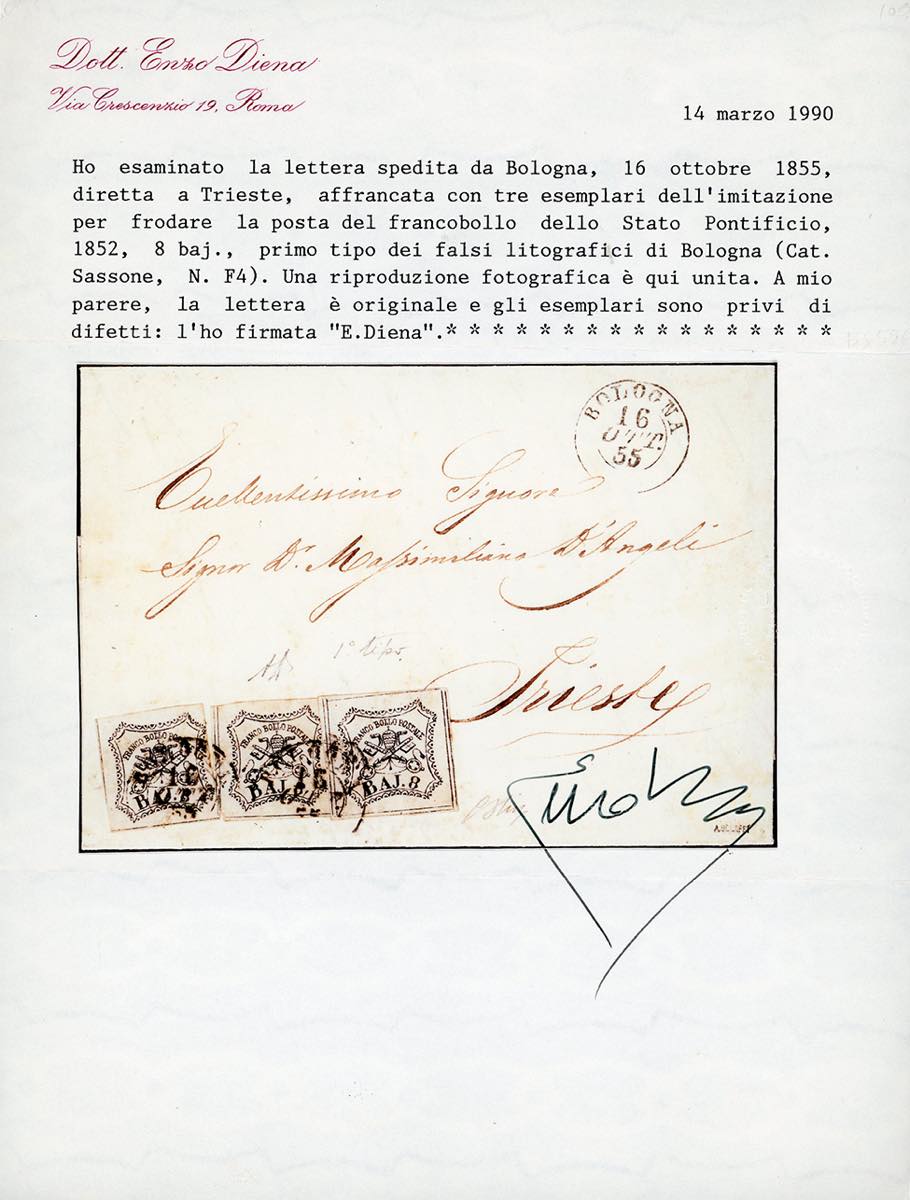 Dott. Enzo Diena
Via Crescenzio 19, Roma
14 marzo 1990
Ho esaminato la lettera spedita da Bologna, 16 ottobre 1855,
diretta a Trieste, affrancata con tre esemplari dell'imitazione
per frodare la posta del francobollo dello Stato Pontificio,
1852, 8 baj., primo tipo dei falsi litografici di Bologna (Cat.
Sassone, N. F4). Una riproduzione fotografica è qui unita. A mio
parere, la lettera è originale e gli esemplari sono privi di
difetti: l'ho firmata "E.Diena".* * * * * * * * * * * * * * * * * *
BOLOGNA
16
OTT.
55
Eccellentissimo Signore
Signor Dr. Massimiliano D'Angeli
1º tipo.
Trieste
FRANCO BOLLO POSTALE
BAJ. 8
FRANCO BOLLO POSTALE
BAJ. 8
FRANCO BOLLO POSTALE
BAJ. 8